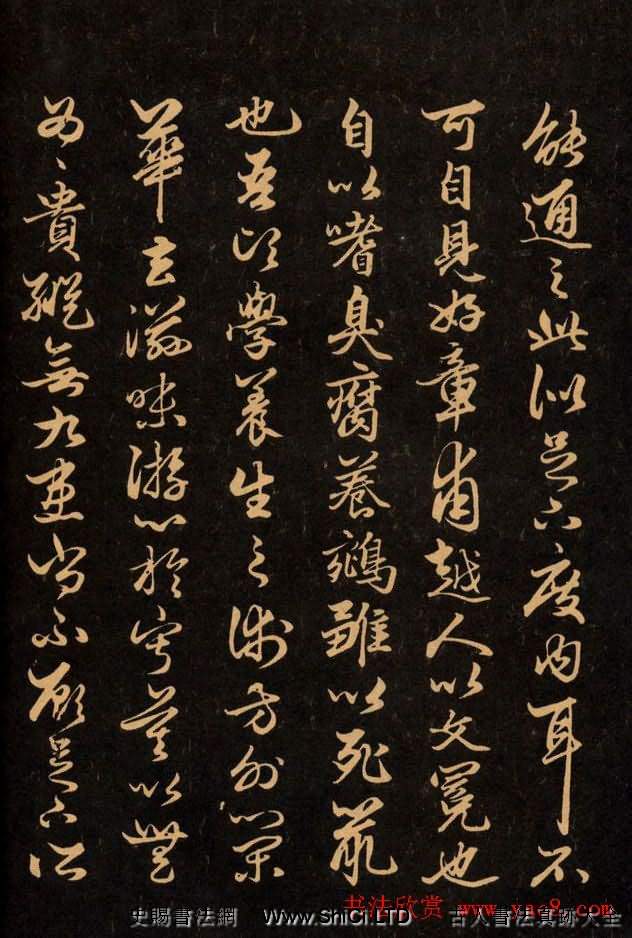 能通之此似足下度内耳不
可自見好章甫越人以文冕也
自以嗜臭腐養鵷雛以死鼠
也吾頃學養生之術方外榮
華去滋味游心於寂寞以無
為〻貴縱無九患尚不顧足下所
书法欣赏
史賜書法網 WWW.ShiCi.LTD 古人書法真跡大全